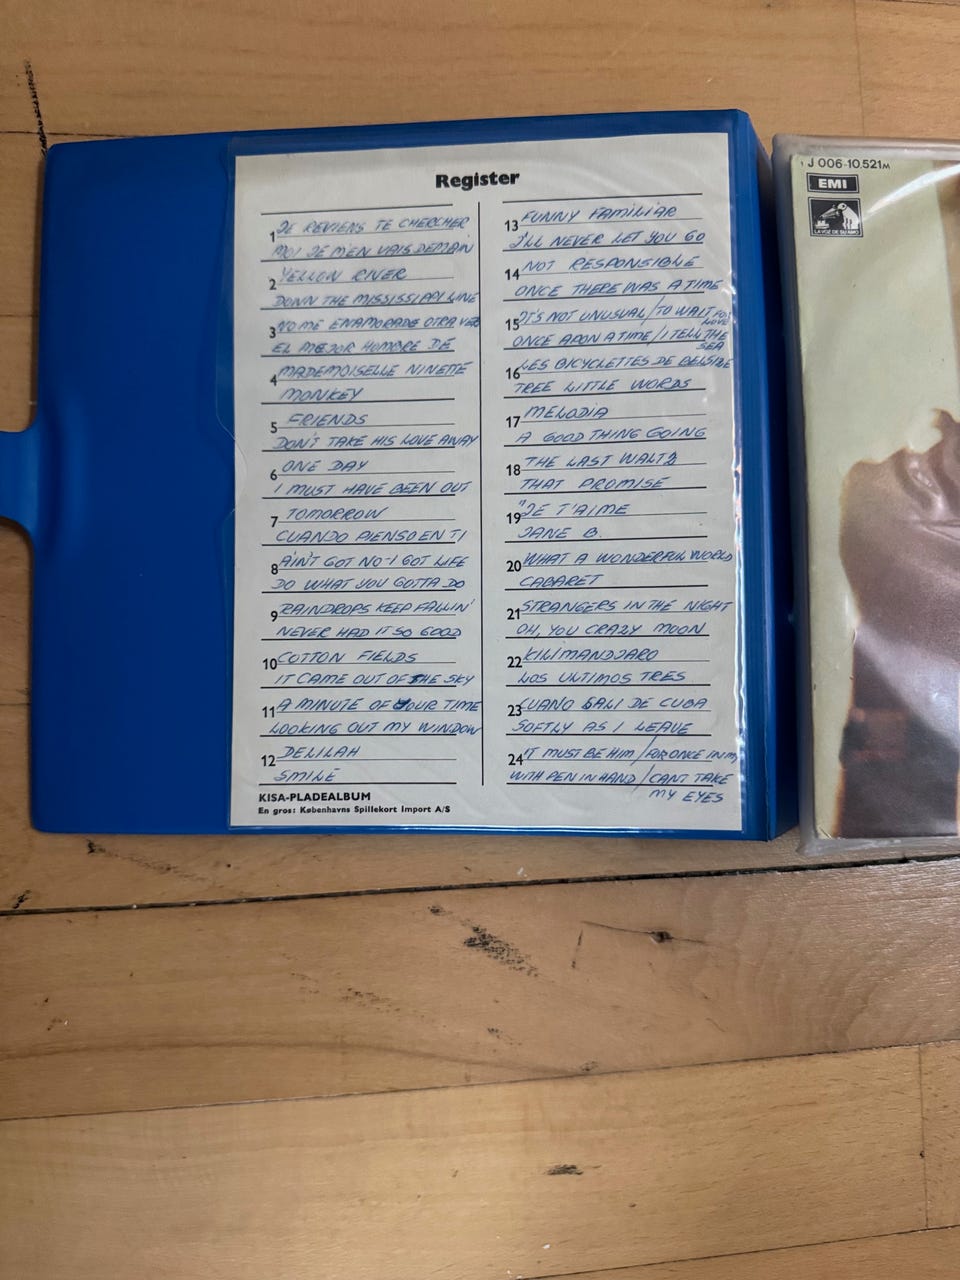 Register
1 JE REVIENS TE CHERCHER
MOI JE M'EN VAIS DEMAIN
2 YELLOW RIVER
DOWN THE MISSISSIPPI LINE
3 NO ME ENAMORADE OTRA VEZ
EL MEJOR HOMBRE DE
4 MADEMOISELLE NINETTE
MONKEY
5 FRIENDS
DON'T TAKE HIS LOVE AWAY
6 ONE DAY
I MUST HAVE BEEN OUT
7 TOMORROW
CUANDO PIENSO EN TI
8 AIN'T GOT NO-I GOT LIFE
DO WHAT YOU GOTTA DO
9 RAINDROPS KEEP FALLIN'
NEVER HAD IT SO GOOD
10 COTTON FIELDS
IT CAME OUT OF THE SKY
11 A MINUTE OF YOUR TIME
LOOKING OUT MY WINDOW
12 DELILAH
SMILE
KISA-PLADEALBUM
En gros: Københavns Spillekort Import A/S
13 FUNNY FAMILIAR
I'LL NEVER LET YOU GO
14 NOT RESPONSIBLE
ONCE THERE WAS A TIME
15 IT'S NOT UNUSUAL / TO WAIT FOR
LOVE
ONCE APON A TIME / I TELL THE
SEA
16 LES BICYCLETTES DE BELSIZE
TREE LITTLE WORDS
17 MELODIA
A GOOD THING GOING
18 THE LAST WALTZ
THAT PROMISE
19 "JE T'AIME
JANE B.
20 WHAT A WONDERFUL WORLD
CABARET
21 STRANGERS IN THE NIGHT
OH, YOU CRAZY MOON
22 KILIMANDJARO
LOS ULTIMOS TRES
23 CUANO SALI DE CUBA
SOFTLY AS I LEAVE
24 IT MUST BE HIM / FOR ONCE IN MY
WITH PEN IN HAND / CANT TAKE
MY EYES
J 006-10.521 M
EMI
LA VOZ DE SU AMO